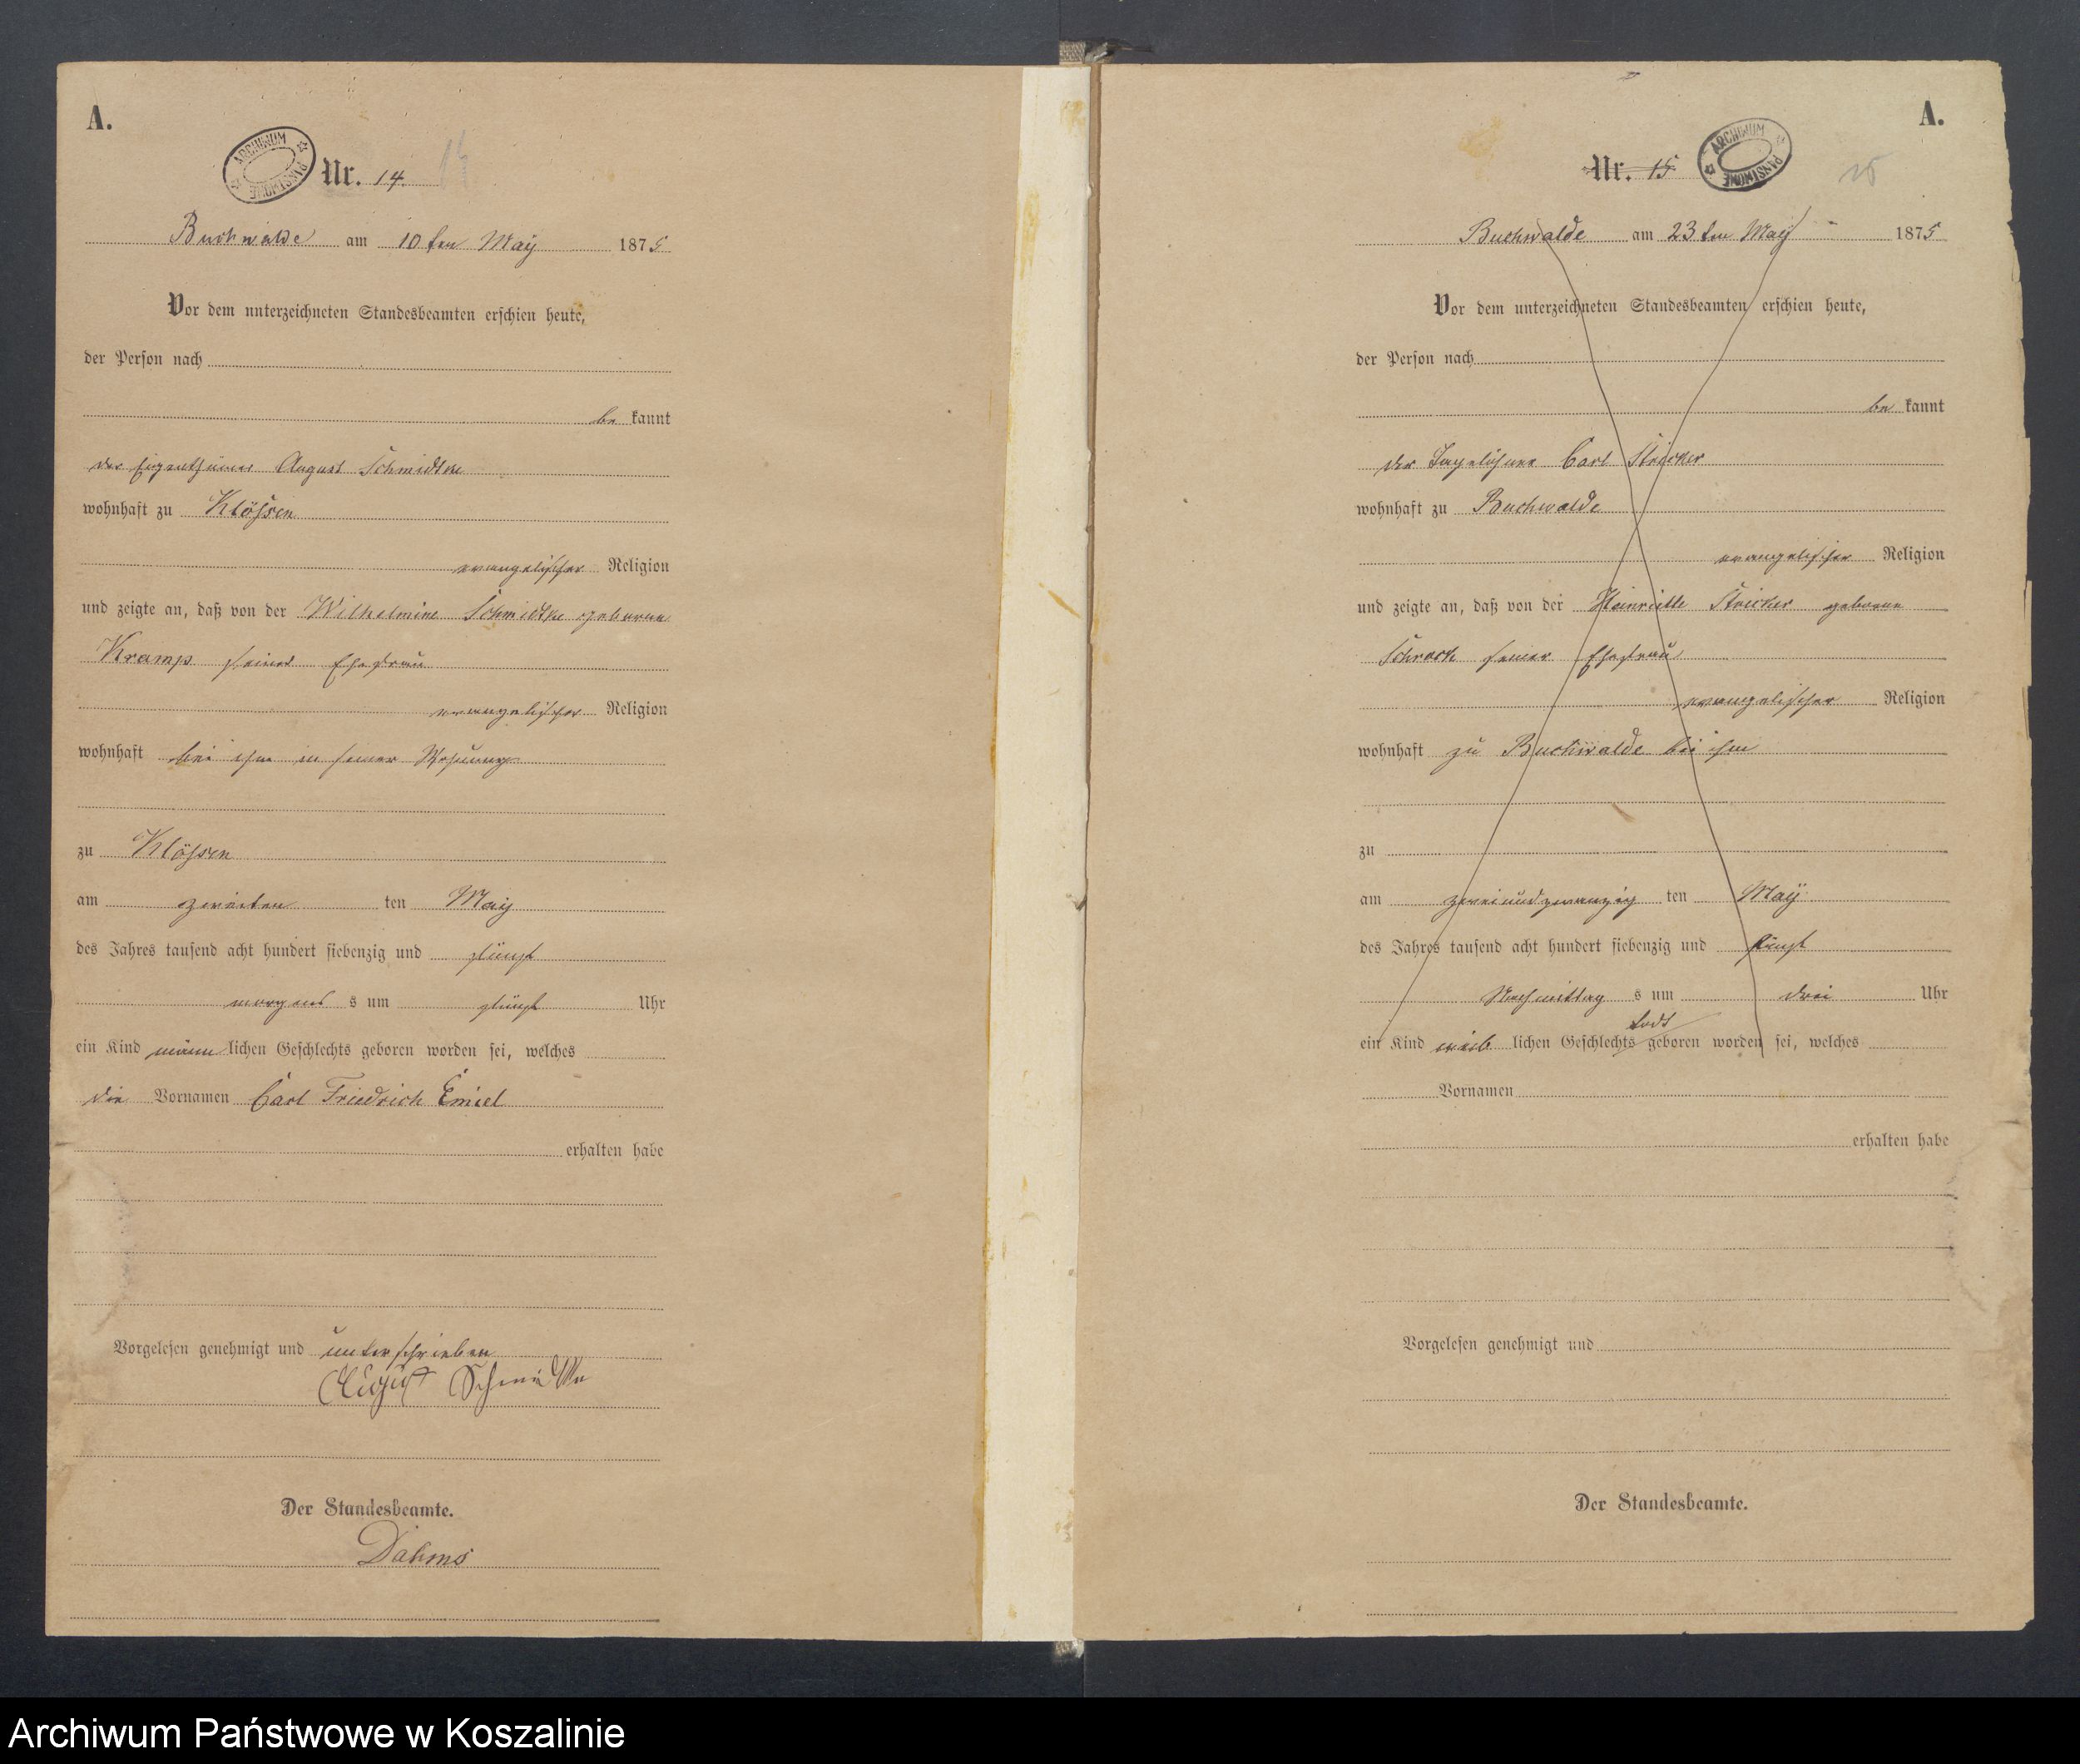 A.
ARCHIWUM PAŃSTWOWE
Nr. 14.
14
Buchwalde am 10 ten Maÿ 1875
Vor dem unterzeichneten Standesbeamten erschien heute,
der Person nach
be kannt
der Eigenthümer August Schmidtke
wohnhaft zu Klössen
evangelischer Religion
und zeigte an, daß von der Wilhelmine Schmidtke geborene
Kramp seiner Ehefrau
evangelischer Religion
wohnhaft bei ihm in seiner Wohnung
zu Klössen
am zweiten ten Maÿ
des Jahres tausend acht hundert siebenzig und fünf
morgens s um fünf Uhr
ein Kind männ lichen Geschlechts geboren worden sei, welches
die Vornamen Carl Friedrich Emiel
erhalten habe
Vorgelesen genehmigt und unterschrieben
August Schmidtke
Der Standesbeamte.
Dahms
A.
Nr. 15
ARCHIWUM PAŃSTWOWE
15
Buchwalde am 23 ten Maÿ 1875
Vor dem unterzeichneten Standesbeamten erschien heute,
der Person nach
be kannt
der Tagelöhner Carl Stricker
wohnhaft zu Buchwalde
evangelischer Religion
und zeigte an, daß von der Heinriette Stricker geborene
Schrock seiner Ehefrau
evangelischer Religion
wohnhaft zu Buchwalde bei ihm
zu
am zweiundzwanzig ten Maÿ
des Jahres tausend acht hundert siebenzig und fünf
Nachmittag s um drei Uhr
todt
ein Kind weib lichen Geschlechts geboren worden sei, welches
Vornamen
erhalten habe
Vorgelesen genehmigt und
Der Standesbeamte.
Archiwum Państwowe w Koszalinie